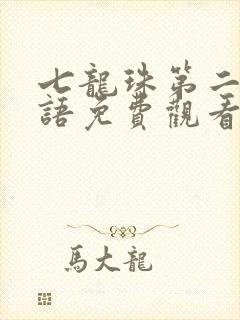 七龍珠第二
語免費觀看
馬大龍